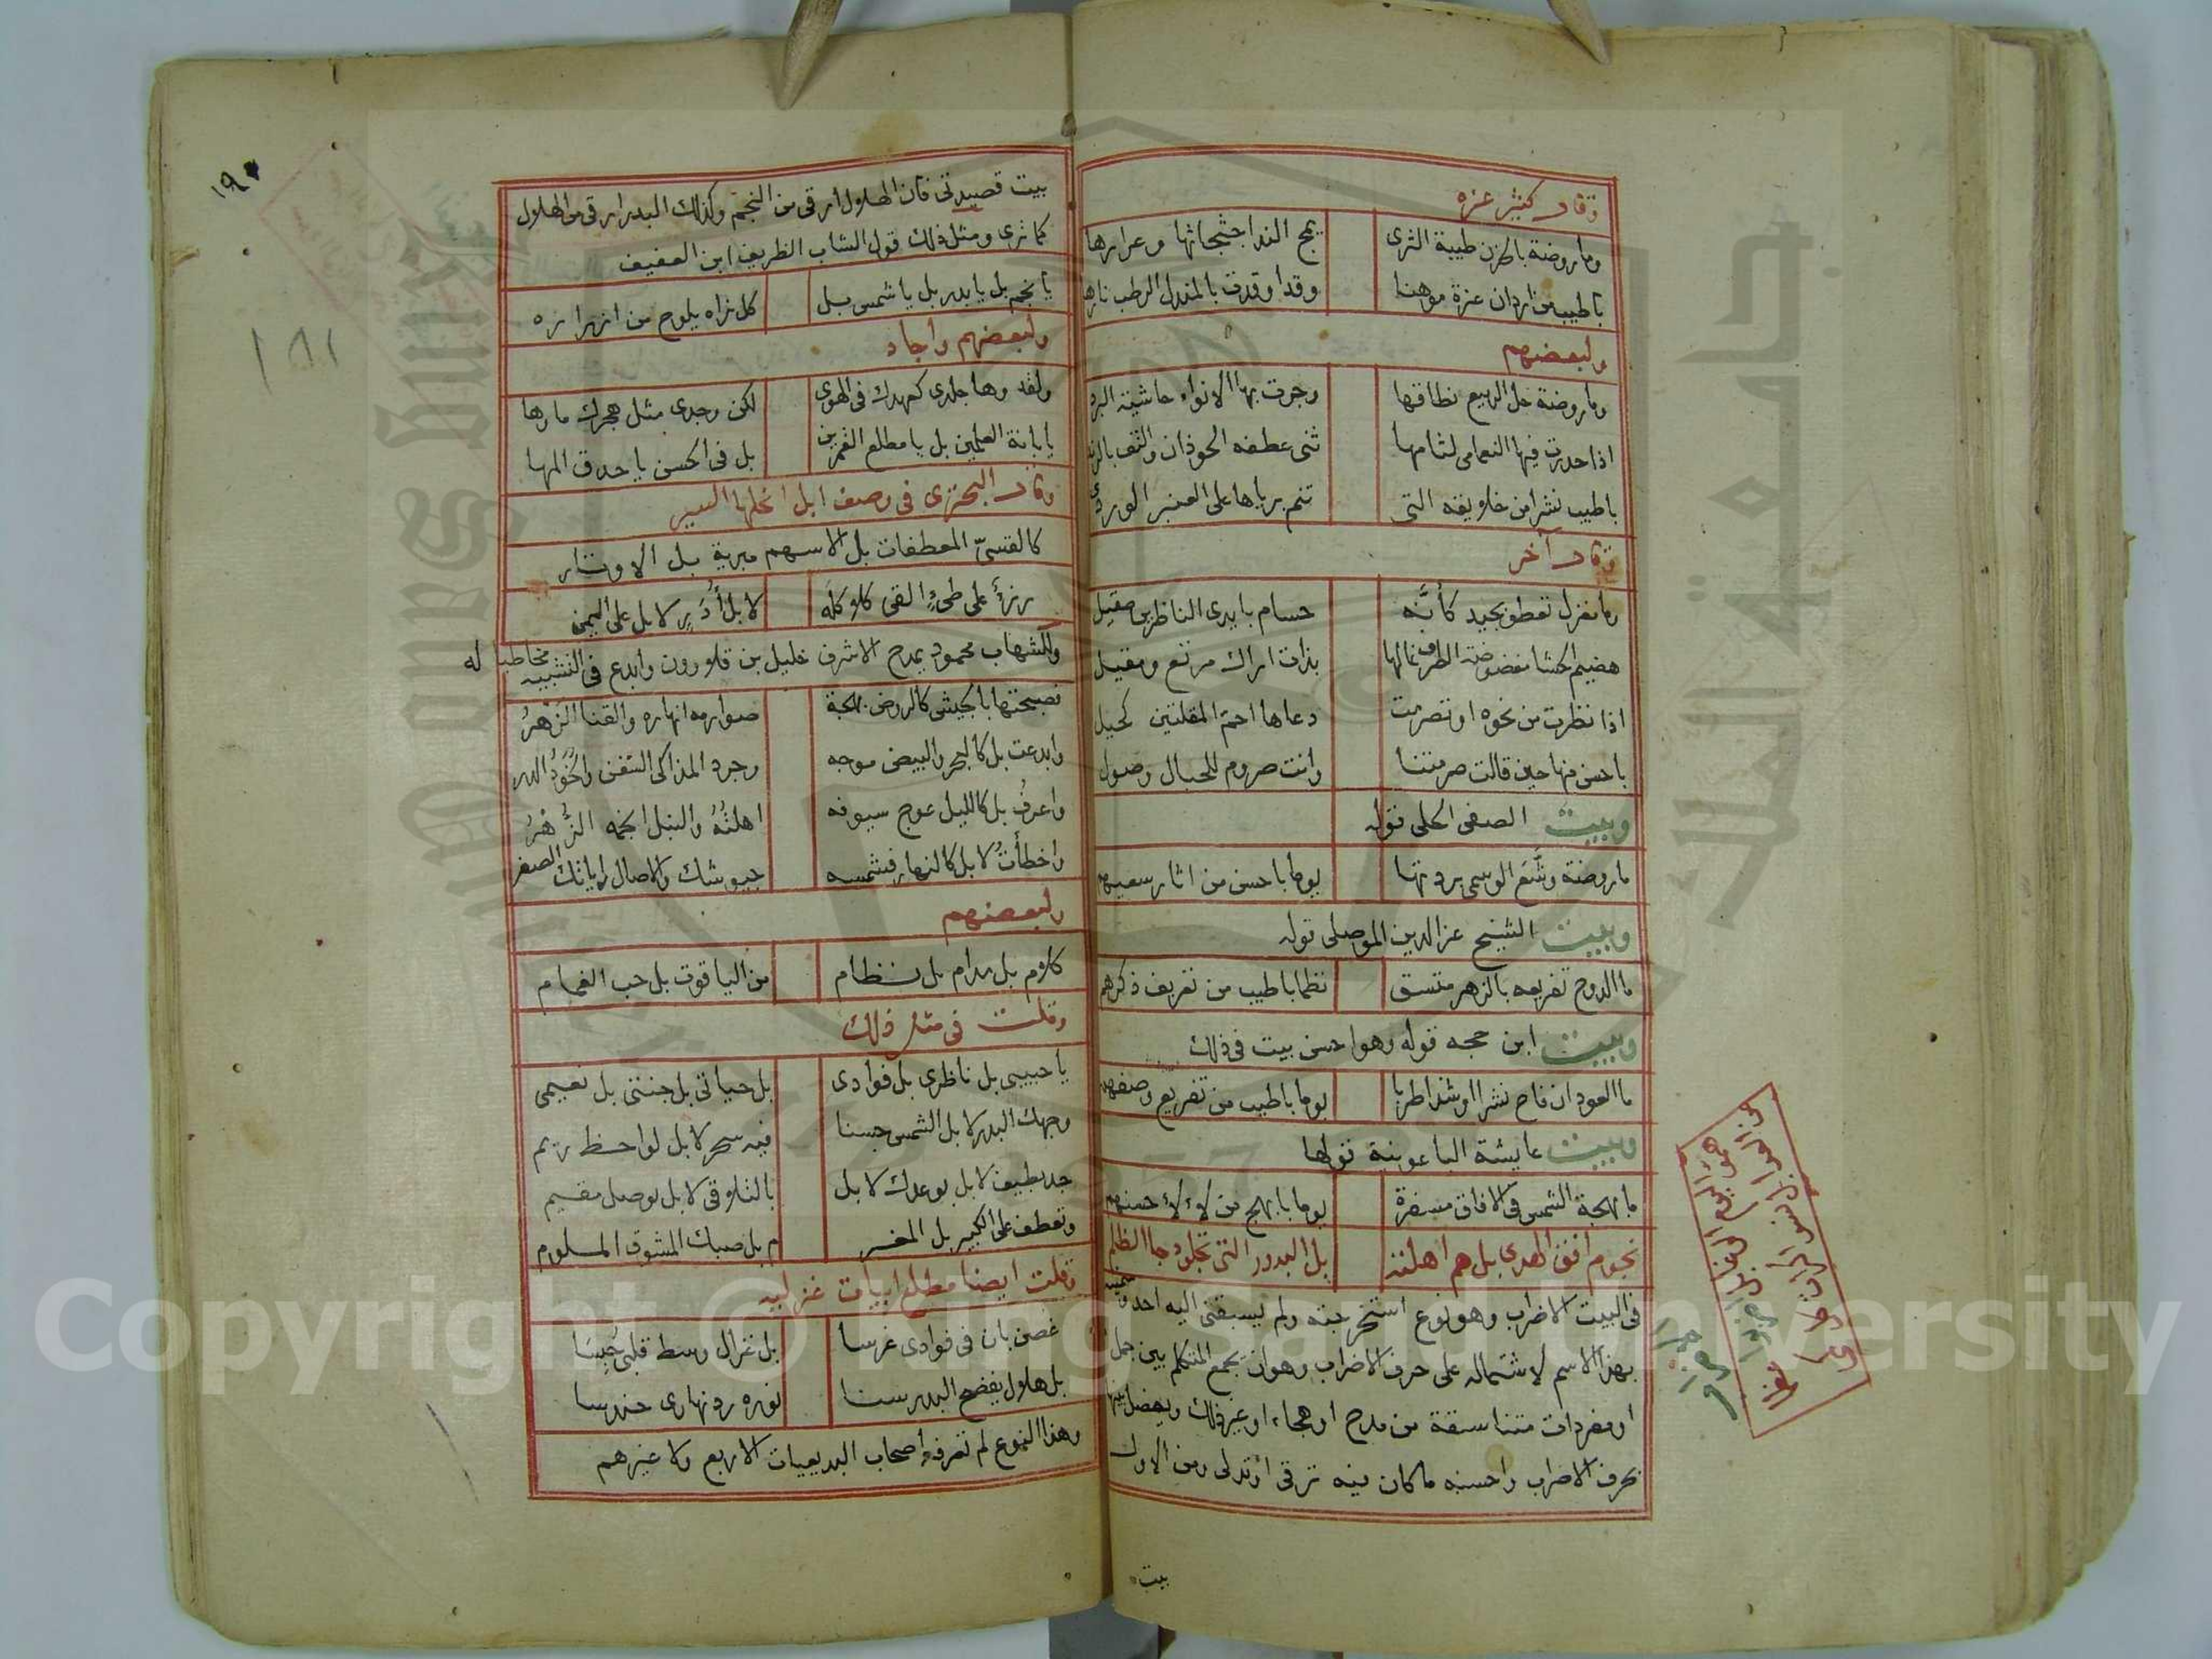 وقال كثير عزه
وما روضة بالحزن طيبة الثرى يمج الندا جثجاثها وعرارها
باطيب من اردان عزة موهنا وقد اوقدت بالمندل الرطب نارها
ولبعضهم
وما روضة حل الربيع نطاقها وجرت بها الانواء حاشية البرد
اذا حدرت فيها النعامى لثامها ثنى عطفه الحوذان والتف بالرند
باطيب نشرا من خلايقه التي تنم برياها على العنبر الوردي
وقال آخر
وما مغزل تعطو بجيد كأنه حسام بايدى الناظرين صقيل
هضيم الحشا مغضوضة الطرف غالها بذات اراك مرتع ومقيل
اذا نظرت من نحوه او تصرمت دعاها احم المقلتين كحيل
باحسن منها حين قالت صرمتنا وانت صروم للحبال وصول
وبيت الصفى الحلى قوله
ما روضة وشع الوسمى بردتها يوما باحسن من اثار سعيهم
وبيت الشيخ عز الدين الموصلى قوله
ما الدوح تفريعه بالزهر متسق نظما باطيب من تعريف ذكرهم
وبيت ابن حجه قوله وهو احسن بيت فى ذلك
ما العود ان فاح نشرا او شدا طربا يوما باطيب من تفريع وصفهم
وبيت عايشة الباعونية قولها
ما بهجة الشمس فى الافاق مسفرة يوما بابهج من لاءلاء حسنهم
نجوم افق الهدى بل هم اهلته بل البدور التى تجلو دجا الظلم
فى البيت الاضراب وهو نوع استخرجته ولم يسبقنى اليه احد وسميته
بهذا الاسم لاشتماله على حرف الاضراب وهو ان يجمع المتكلم بين جمل
او مفردات متناسقة من مدح او هجاء او غير ذلك ويفصل بينها
بحرف الاضراب واحسنه ما كان فيه ترقى او تدلى ومن الاول
بيت
١٩٠
١٨١
بيت قصيدتى فان الهلال ارقى من النجم وكذلك البدر ارقى من الهلال
كما ترى ومثل ذلك قول الشاب الظريف ابن العفيف
يا نجم بل يا بدر بل يا شمس بل كل نراه يلوح من ازراره
ولبعضهم واجاد
ولقد وها جلدى كعهدك فى الهوى لكن وجدى مثل هجرك ما وها
يا بانة العلمين بل يا مطلع القمرين بل فى الحسن يا حدق المها
وقال البحترى فى وصف ابل انحلها السير
كالقسىّ المعطفات بل الاسهم مبرية بل الاوتار
رزأ على طىء القى كلاكله لا بل أدد لا بل على اليمن
وللشهاب محمود يمدح الاشرف خليل بن قلاوون وابدع فى التشبيه مخاطبا له
فصبحتها بالجيش كالروض بهجة صوارمه انهاره والقنا الزهر
وابدعت بل كالبحر والبيض موجه وجرد المذاكى السفن والخود الدر
واعرف بل كالليل عوج سيوفه اهلته والنبل انجمه الزهر
واخطأت لا بل كالنهار فشمسه جيوشك والاصال راياتك الصفر
ولبعضهم
كلام بل مدام بل نظام من الياقوت بل حب الغمام
وقلت فى مثل ذلك
يا حبيبى بل ناظرى بل فوادى بل حياتى بل جنتى بل نعيمى
وجهك البدر لا بل الشمس حسنا فيه سحر لا بل لواحظ ريم
جد بطيف لا بل بوعدك لا بل بالتلاقى لا بل بوصل مقيم
وتعطف على الكئيب بل المغر م بل صبك المشوق الملوم
وقلت ايضا مطلع ابيات غزليه
غصن بان فى فوادى غرسا بل غزال وسط قلبى كنسا
بل هلال يفضح البدر سنا نوره رد نهارى حندسا
وهذا النوع لم تعرفه اصحاب البديعيات الاربع ولا غيرهم
جامعة الملك سعود
King Saud University
1957
Copyright © King Saud University